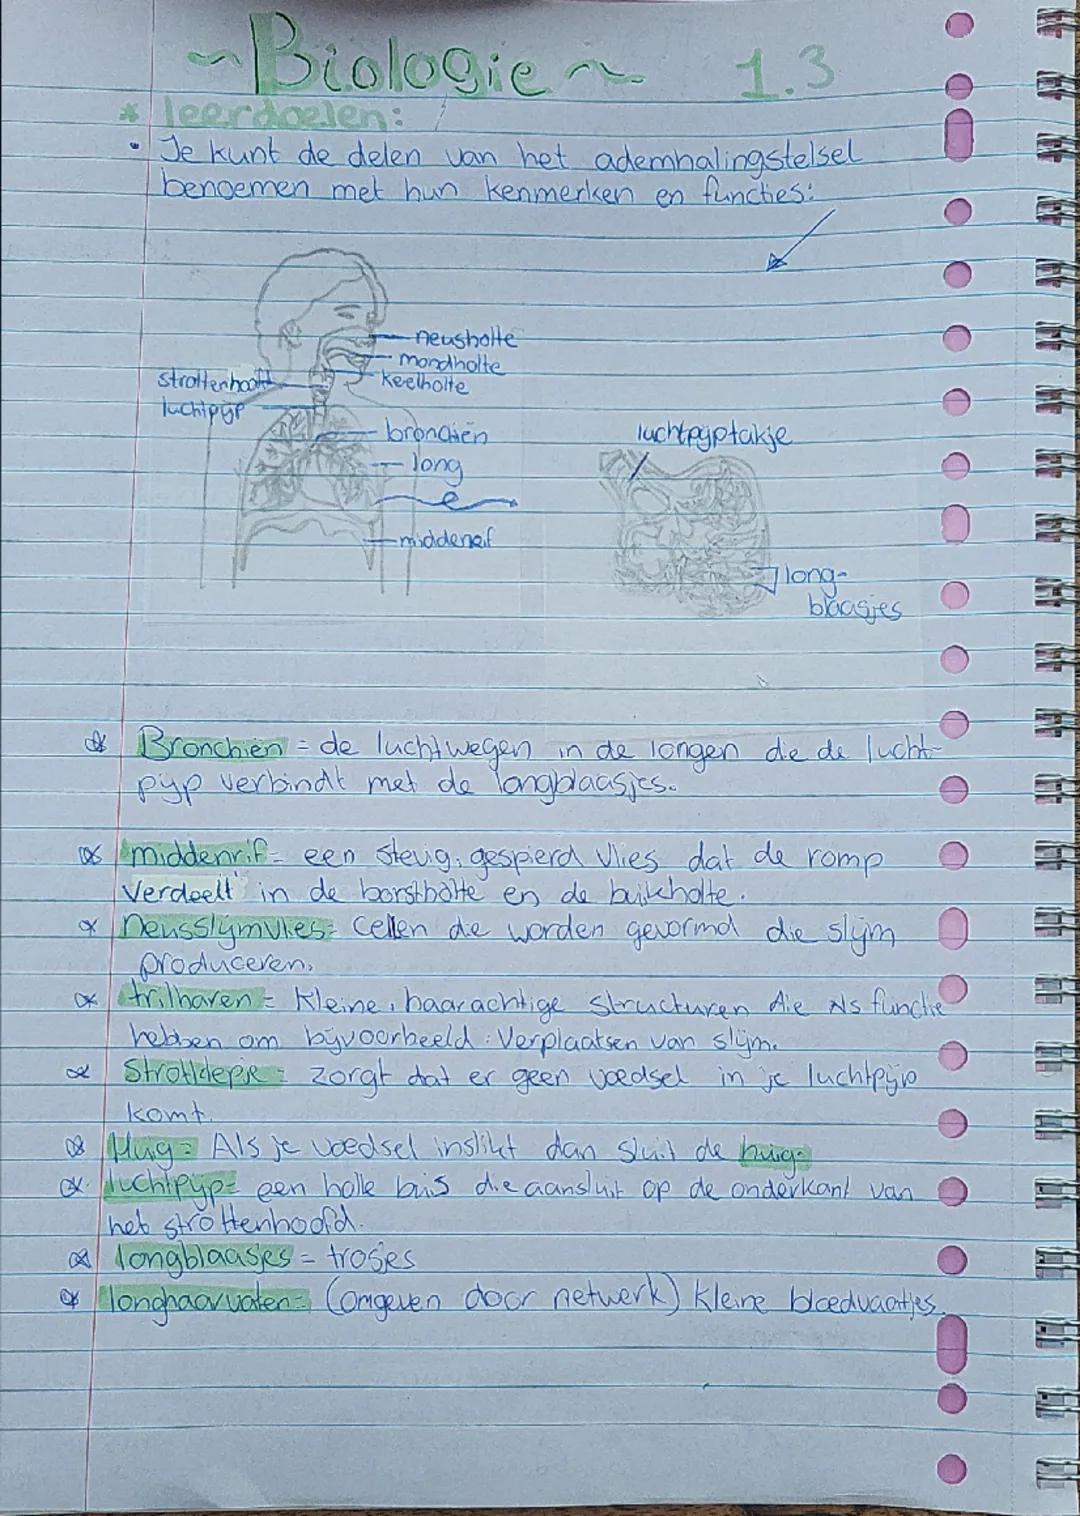 ~Biologie~ 1.3
* leerdoelen:
• Je kunt de delen van het ademhalingstelsel
benoemen met hun kenmerken en functies:
neusholte
mondholte
keelholte
strottenhoofd
luchtpijp
bronchiën
long
middenrif
luchtpijptakje
long-
blaasjes
* Bronchiën = de luchtwegen in de longen die de lucht-
pijp verbindt met de longblaasjes.
* middenrif = een stevig, gespierd vlies dat de romp
verdeelt in de borstholte en de buikholte.
* Neusslijmvlies = Cellen die worden gevormd die slijm
produceren.
* trilharen = Kleine, haarachtige structuren die als functie
hebben om bijvoorbeeld: Verplaatsen van slijm.
* Strotklepje = zorgt dat er geen voedsel in je luchtpijp
komt.
* Huig = Als je voedsel inslikt dan sluit de huig.
* luchtpijp = een holle buis die aansluit op de onderkant van
het strottenhoofd.
* longblaasjes = trosjes
* longhaarvaten = (omgeven door netwerk) kleine bloedvaatjes.